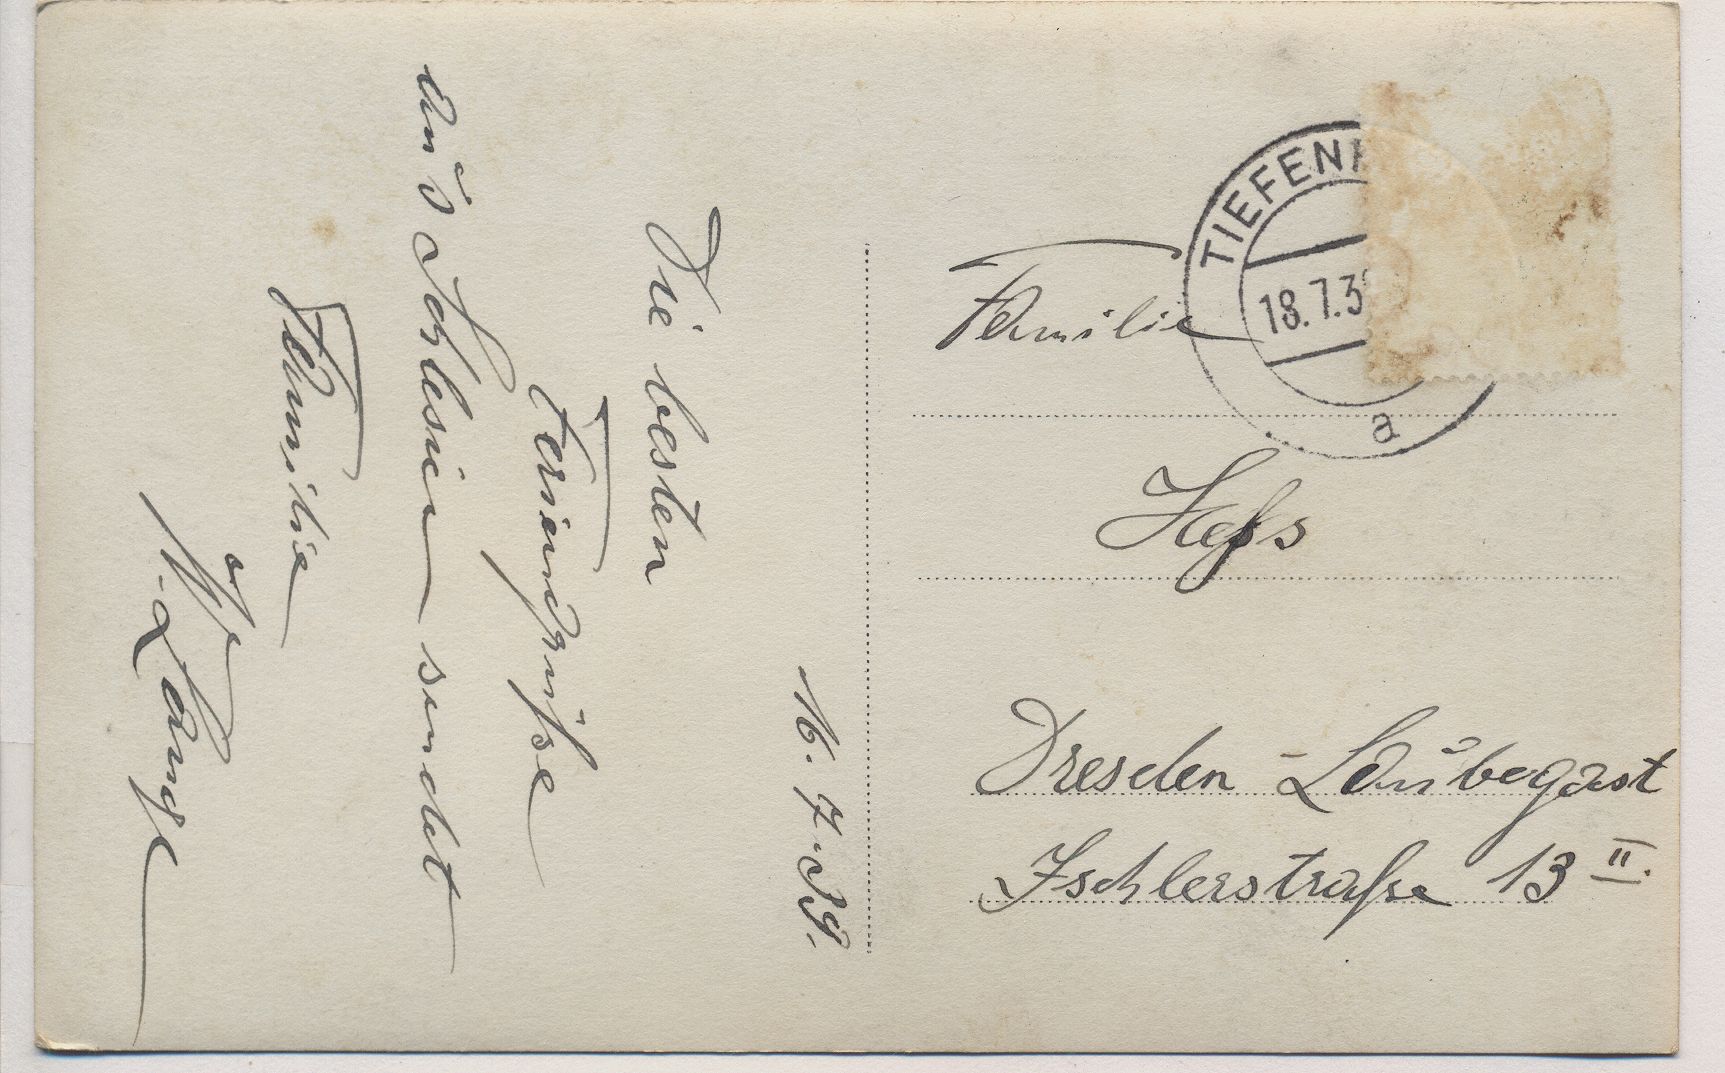 16. 7. 39.
Die besten
Feriengrüße
aus Schlesien sendet
Familie
Lange
TIEFEN
18.7.3
a
Familie
Heß
Dresden - Laubegast
Ischlerstraße 13 II.